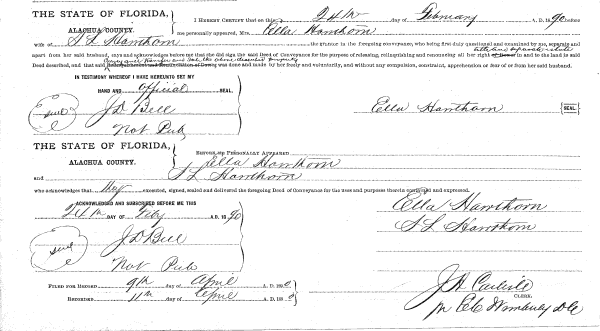 THE STATE OF FLORIDA,
ALACHUA COUNTY.
I HEREBY CERTIFY that on this 24th day of February A. D. 1890 before
me personally appeared, Mrs. Ella Hawthorn
wife of S L Hawthorn the grantor in the foregoing conveyance, who being first duly questioned and examined by me, separate and
apart from her said husband, says and acknowledges before me that she did sign the said Deed of Conveyance for the purpose of releasing, relinquishing and renouncing all her right in and to the land is said
Deed described, and that said was done and made of her freely and voluntarily, and without any compulsion, constraint, apprehension or fear of or from her said husband.
IN TESTIMONY WHEREOF I HAVE HEREUNTO SET MY
HAND AND Official SEAL.
seal
J D Bell
Not Pub
Ella Hawthorn SEAL
THE STATE OF FLORIDA,
ALACHUA COUNTY.
BEFORE ME PERSONALLY APPEARED
Ella Hawthorn
and S L Hawthorn
who acknowledges that they executed, signed, sealed and delivered the foregoing Deed of Conveyance for the uses and purposes therein contained and expressed.
ACKNOWLEDGED AND SUBSCRIBED BEFORE ME THIS
24th DAY OF Feby A. D. 1890
seal
J D Bell
Not Pub
Ella Hawthorn
S L Hawthorn
FILED FOR RECORD 9th day of April A. D. 1890
RECORDED 11th day of April A. D. 1890
J. A. Carlisle
CLERK.
pr Wimberly D C